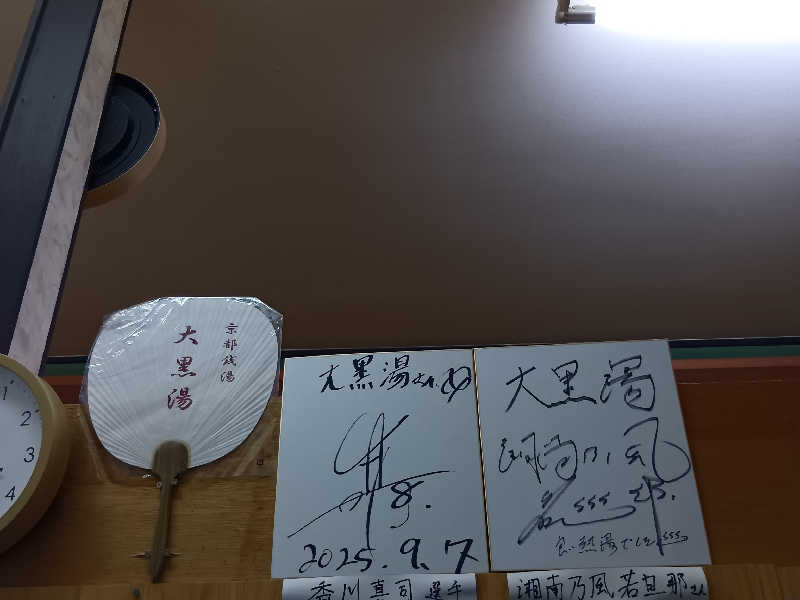 1
2
3
4
京都銭湯
大黒湯
大黒湯さん
8.
2025.9.7
香川真司 選手
大黒湯
湘南乃風
若旦那
湘南乃風 若旦那さん